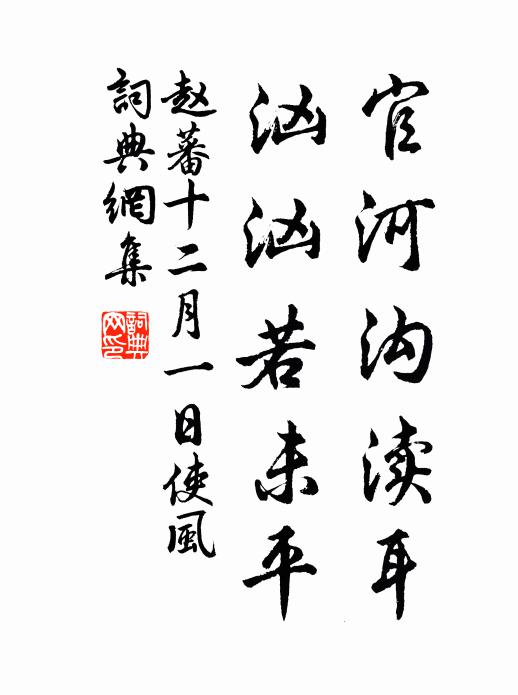 官河沟渎耳
汹汹若未平
赵蕃十二月一日使风
詞典網集
詞典網印